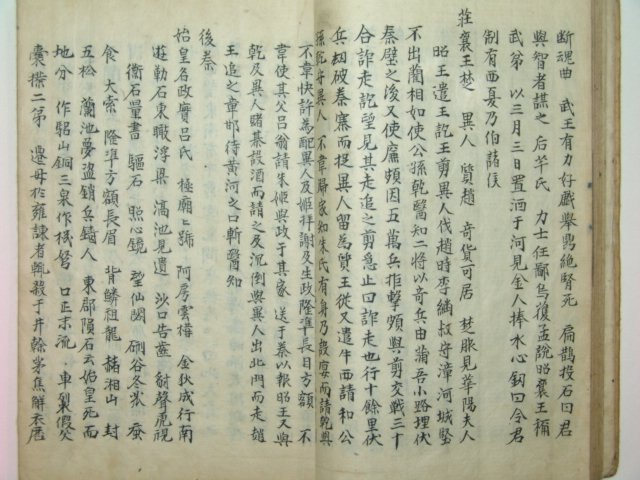 断魂曲 武王有力好戲擧鼎絶臏死 扁鵲投石曰君
與智者謀之 后芊氏 力士任鄙烏獲孟說 昭襄王稱
武弟 以三月三日置酒于河見金人捧水心釰曰令君
制有西夏乃伯諸侯
莊襄王楚 異人 質趙 奇貨可居 楚服見華陽夫人
昭王遣王訖王剪異人伐趙時李繼叔守漳河城堅
不出藺相如使公孫乾醫知二將以奇兵由蒲吾小路埋伏
秦壁之後又使廉頗因五萬兵拒擊頗與剪交戰三十
合詐走訖望見其走追之剪急止曰詐走也行十餘里伏
兵刼破秦寨而捉異人留為質王從又遣牛西請和公
孫乾守異人 不韋歸家知朱氏有身乃設宴而請乾與
不韋快許為配異人及姬拜謝及生政隆準長目方額 不
韋使其父呂翁請朱姬與政于其家 送于秦以報昭王又與
乾及異人賭棊設酒而請之及沉倒與異人出北門而走趙
王追之章邯待黃河之口斬醫知
後秦
始皇名政實呂氏 極廟上號 阿房雲橋 金狄成行南
遊勒石東職浮梁 滈池見遺 沙口告薨 豺聲虎視
衡石量書 驅石 照心鏡 望仙閣 硎谷冬瓜 蠶
食 大索 隆準方額長眉 背鱗祖龍 赭湘山 封
五松 蘭池夢盜銷兵鑄人 東郡隕石云始皇死而
地分 作驪山銅三泉作機弩 口正東流 車裂假父
囊撲二弟 遷母於雍諫者輒殺于井幹茅焦解衣